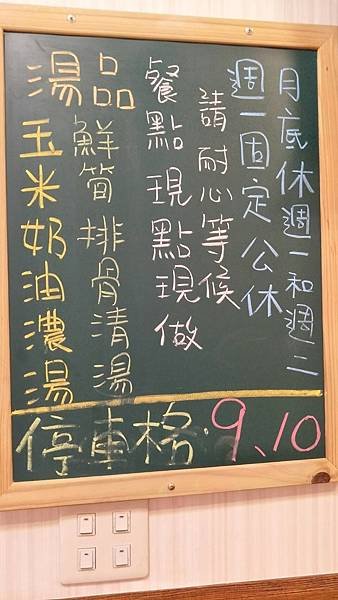 月底休週一和週二
週一固定公休
請耐心等候
餐點現點現做
湯品
鮮筍排骨清湯
玉米奶油濃湯
停車格:9、10